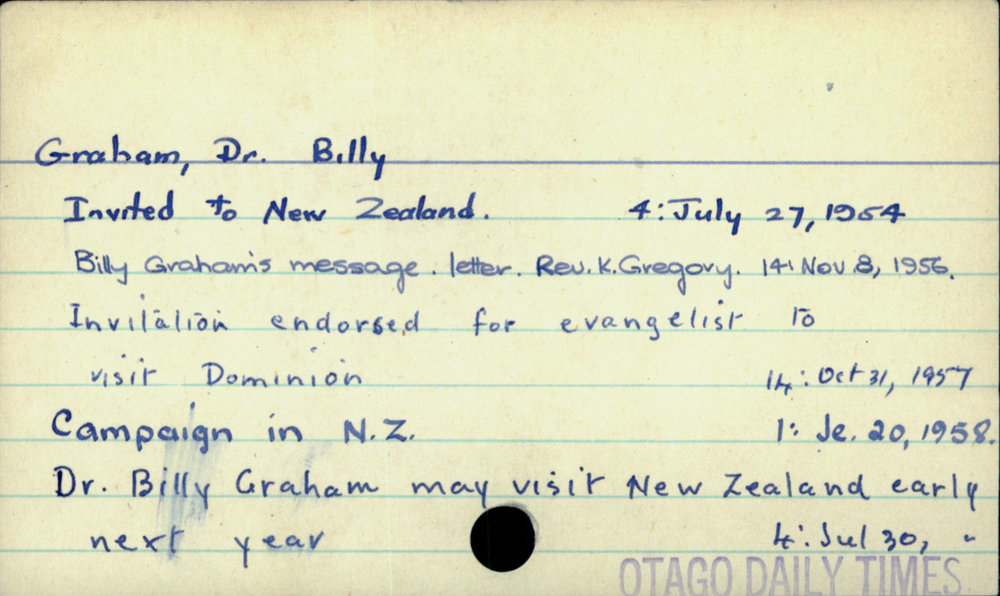 Graham, Dr. Billy
Invited to New Zealand. 4: July 27, 1954
Billy Graham's message. letter. Rev. K. Gregory. 14: Nov 8, 1956.
Invitation endorsed for evangelist to
visit Dominion 14: Oct 31, 1957
Campaign in N.Z. 1: Je. 20, 1958.
Dr. Billy Graham may visit New Zealand early
next year 4: Jul 30, "
OTAGO DAILY TIMES